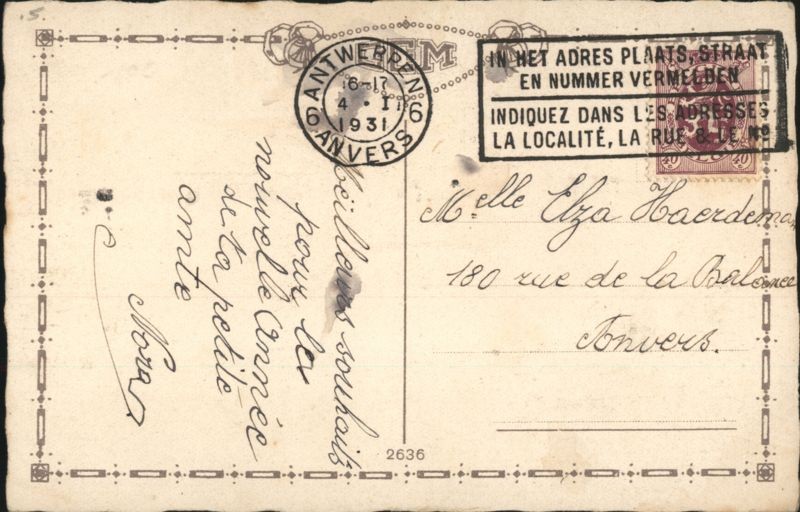 5.
ANTWERPEN
16-17
4 · I
1931
6 6
ANVERS
IN HET ADRES PLAATS, STRAAT
EN NUMMER VERMELDEN
INDIQUEZ DANS LES ADRESSES
LA LOCALITÉ, LA RUE & LE Nº
40 40
Meilleurs souhaits
pour la
nouvelle Année
de ta petite
amie
Nora
Melle Elza Haerdeman
180 rue de la Balance
Anvers.
2636